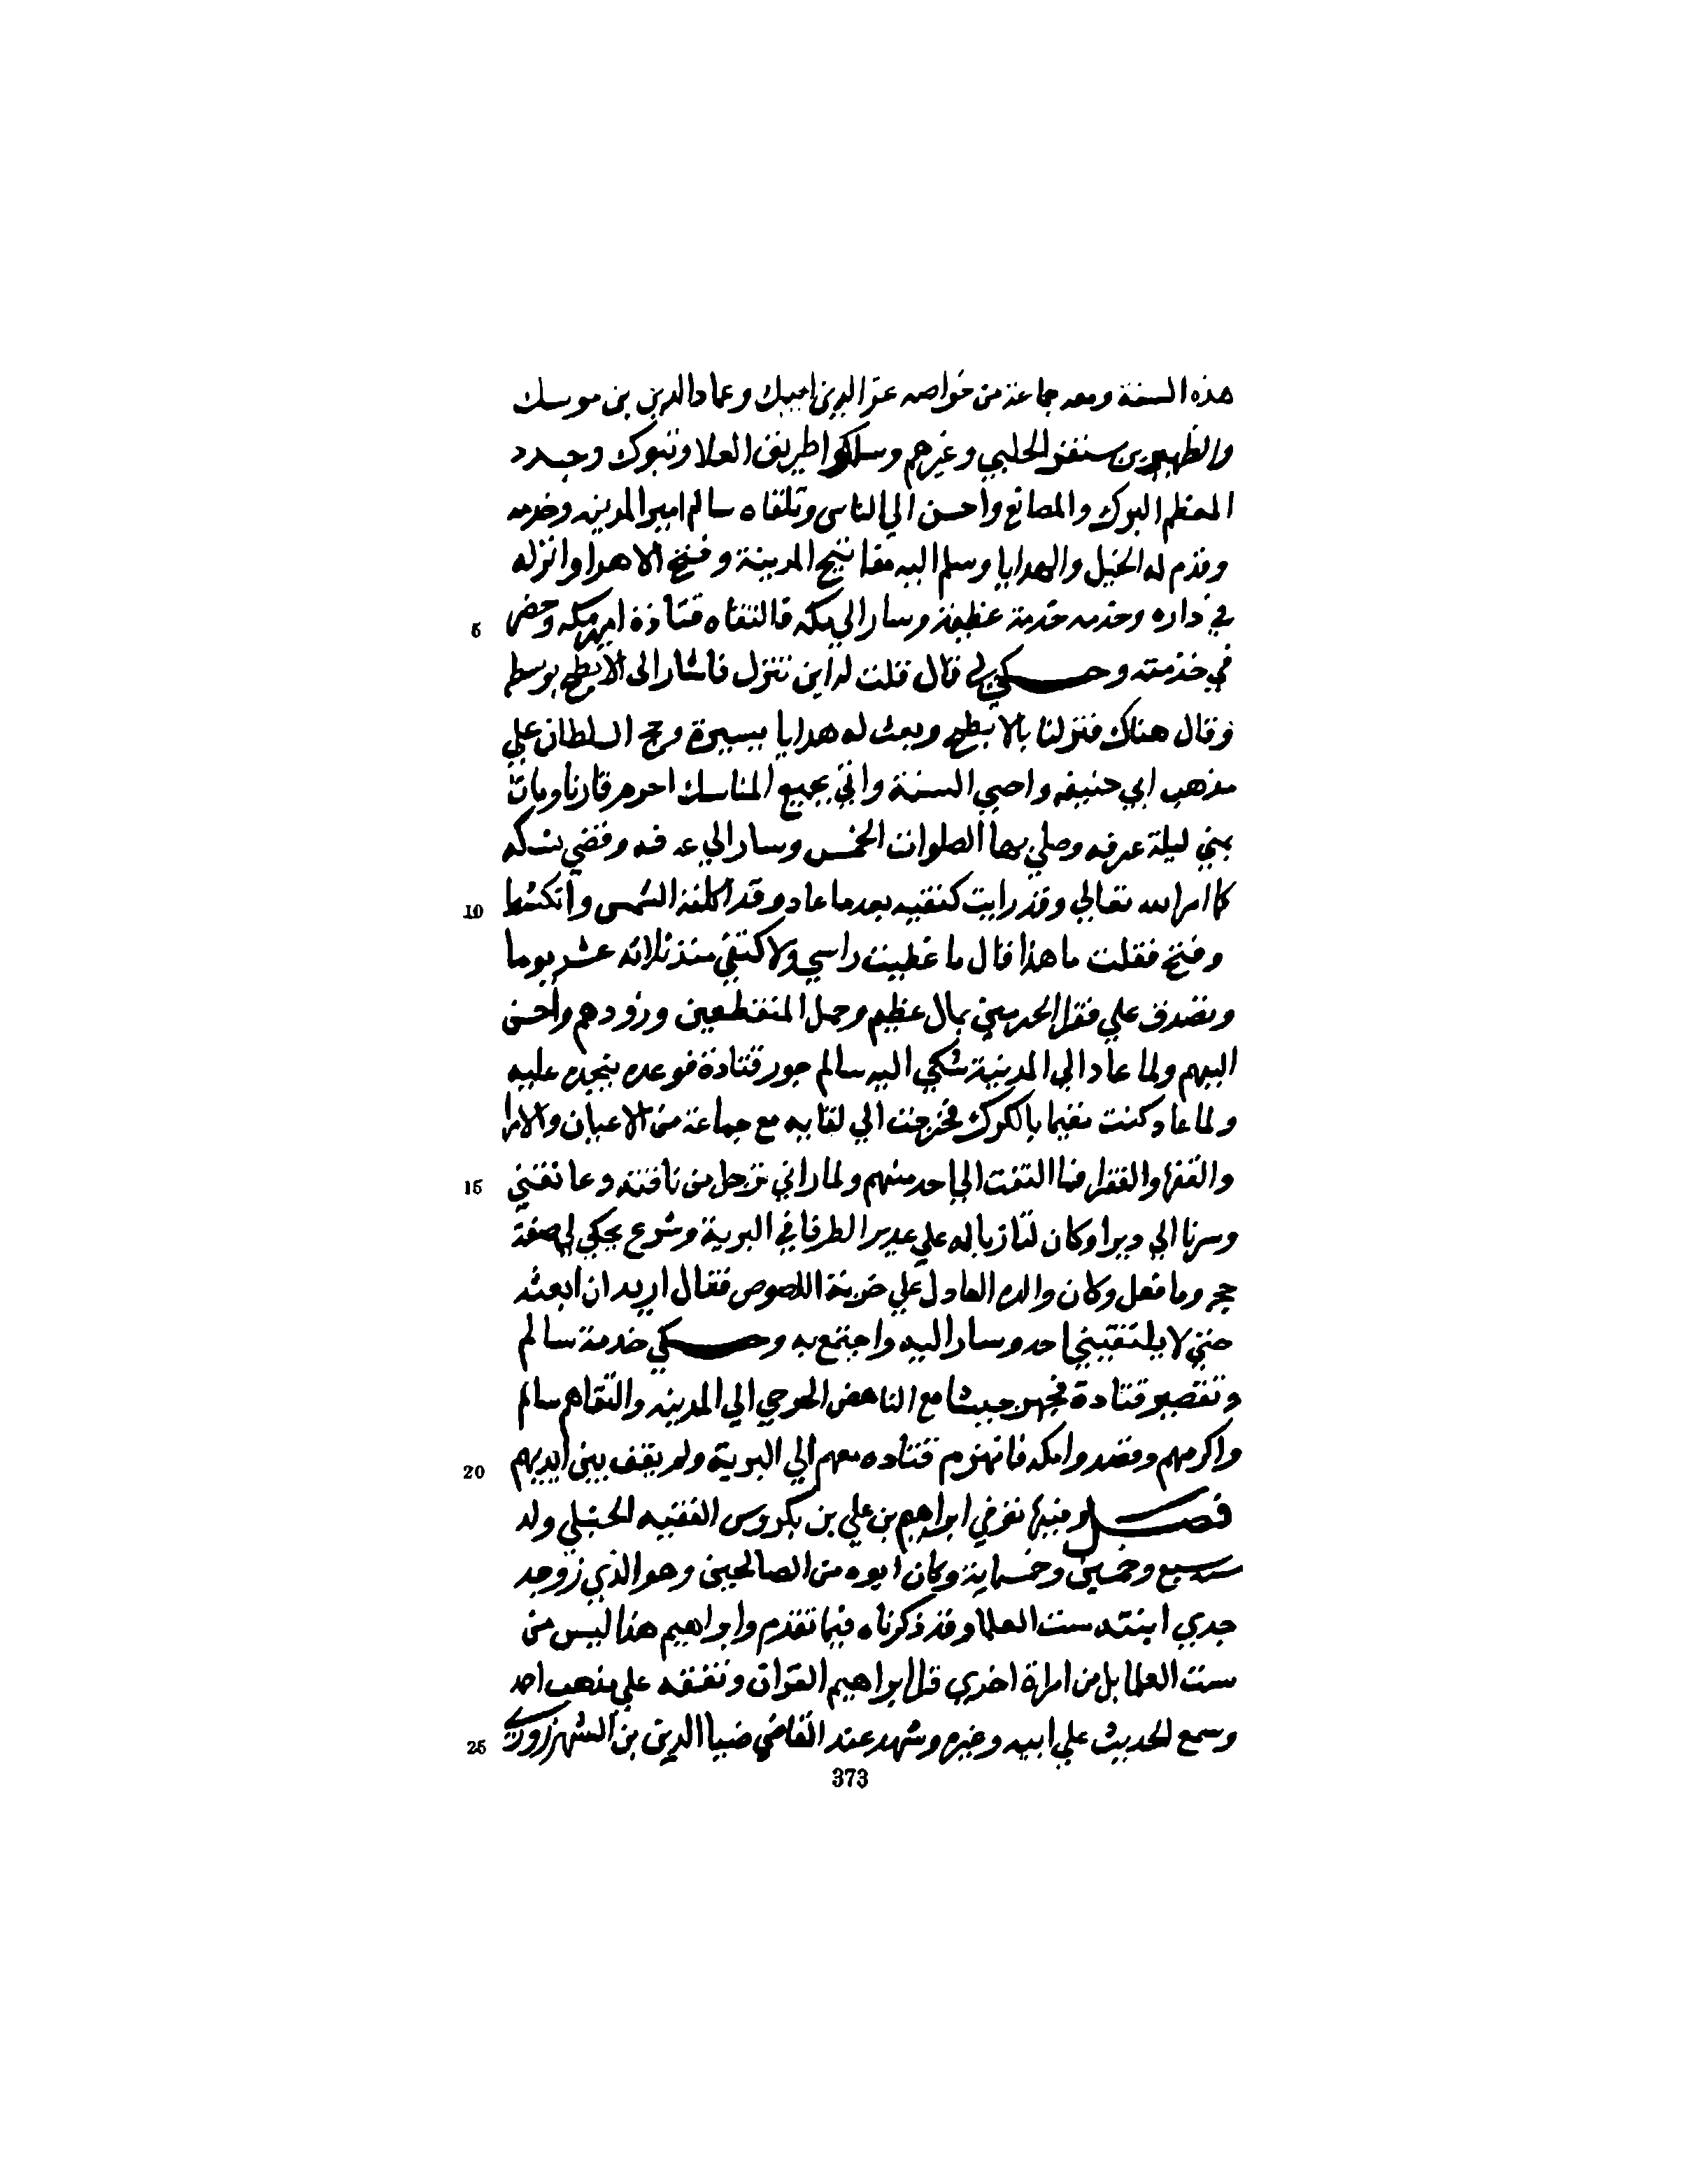 هذه السنة ومعه جماعة من خواصه عز الدين ايبك وعماد الدين بن موسك
والظهير بن سنقر الحلبي وغيرهم وسلكوا طريق العلا وتبوك وجدد
المعظم البرك والمصانع واحسن الي الناس وتلقاه سالم امير المدينه وخدمه
وقدم له الخيل والهدايا وسلم اليه مفاتيح المدينة وفتح الاهرا وانزله
في داره وخدمه خدمة عظيمة وسار الي مكه فالتقاه قتادة امير مكه وحضر
5
في خدمته وحكي لي قال قلت له اين ننزل فاشار الى الابطح بوسطه
وقال هناك فنزلنا بالابطح وبعث له هدايا يسيرة وحج السلطان علي
مذهب ابي حنيفه واحيي السنة واتي بجميع المناسك احرم قارنا وبات
بمني ليلة عرفه وصلي بها الصلوات الخمس وسار الي عرفه وقضي نسكه
كما امر الله تعالي وقد رايت كتفيه بعدما عاد وقد اكلته الشمس وانكشطا
10
وفتح فقلت ما هذا قال ما غطيت راسي ولا كتفي منذ ثلاثه عشر يوما
وتصدق علي فقرا الحرمين بمال عظيم وحمل المنقطعين وزودهم واحسن
اليهم ولما عاد الي المدينة شكي اليه سالم جور قتادة فوعده بنجده عليه
ولما عاد كنت مقيما بالكرك فخرجت الي لقايه مع جماعة من الاعيان والامرا
والفقها والفقرا فما التفت الي احد منهم ولما راني ترجل من ناقته وعانقني
15
وسرنا الي ديرا وكان لتا زبا له علي غدير الطرفا في البرية وشرع يحكي لي صفة
حجه وما فعل وكان والده العادل علي خربة اللصوص فقال اريد ان ابعثه
حتي لا يلتقيني احد وسار اليه واجتمع به وحكي خدمة سالم
وتقصير قتادة فجهز جيشا مع الناهض الجرحي الي المدينه والتقاهم سالم
واكرمهم وقصدوا مكه فانهزم قتاده معهم الي البرية ولم يقف بين ايديهم
20
فصل وفيها توفي ابراهيم بن علي بن بكروس الفقيه الحنبلي ولد
سنه سبع وخمسين وخمسماية وكان ابوه من الصالحين وهو الذي زوجه
جدي ابنته ست العلما وقد ذكرناه فيما تقدم وابراهيم هذا ليس من
ست العلما بل من امراة اخري قرا ابراهيم القران وتفقه علي مذهب احمد
وسمع الحديث علي ابيه وغيره وشهد عند القاضي ضيا الدين بن الشهرزوري
25
373